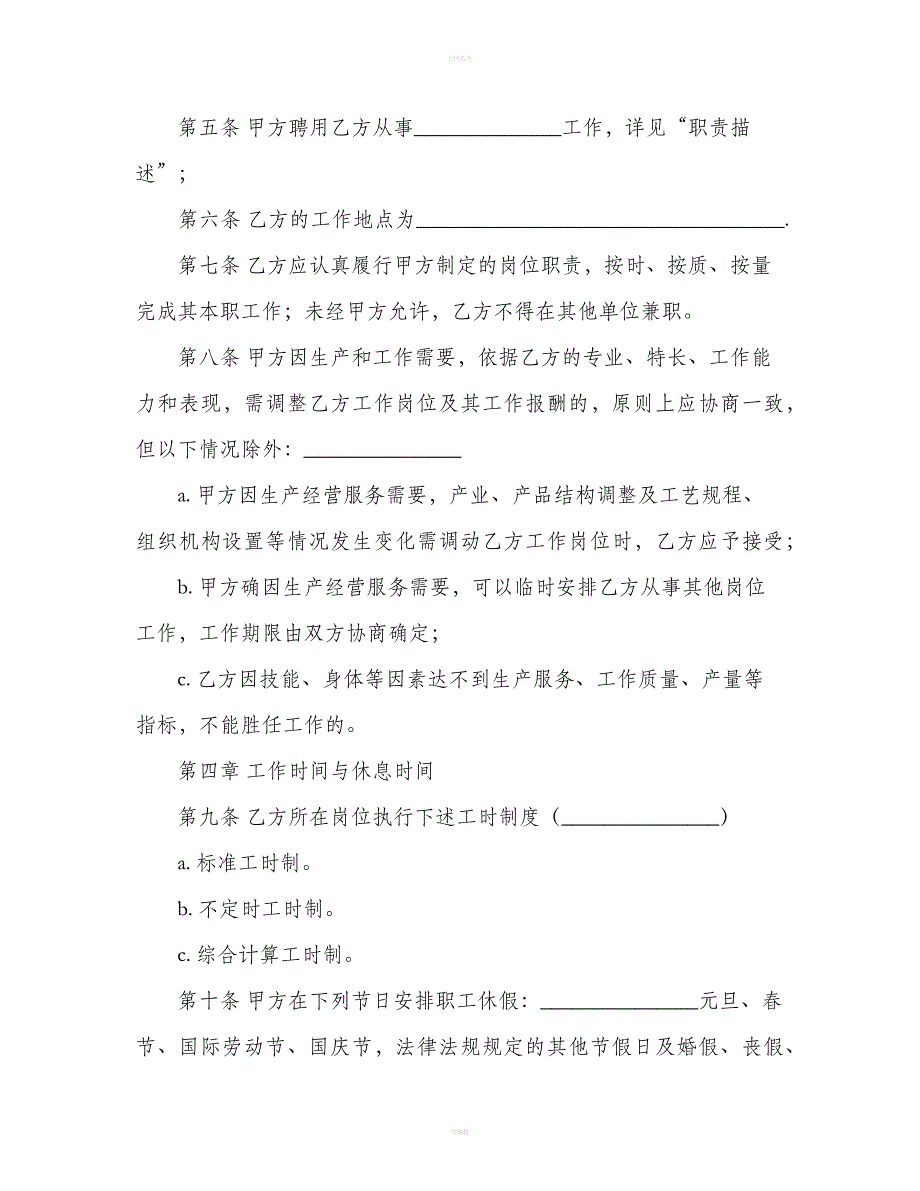 第五条 甲方聘用乙方从事______________工作，详见“职责描
述”；
第六条 乙方的工作地点为___________________________________.
第七条 乙方应认真履行甲方制定的岗位职责，按时、按质、按量
完成其本职工作；未经甲方允许，乙方不得在其他单位兼职。
第八条 甲方因生产和工作需要，依据乙方的专业、特长、工作能
力和表现，需调整乙方工作岗位及其工作报酬的，原则上应协商一致，
但以下情况除外：_______________
a. 甲方因生产经营服务需要，产业、产品结构调整及工艺规程、
组织机构设置等情况发生变化需调动乙方工作岗位时，乙方应予接受；
b. 甲方确因生产经营服务需要，可以临时安排乙方从事其他岗位
工作，工作期限由双方协商确定；
c. 乙方因技能、身体等因素达不到生产服务、工作质量、产量等
指标，不能胜任工作的。
第四章 工作时间与休息时间
第九条 乙方所在岗位执行下述工时制度（_______________）
a. 标准工时制。
b. 不定时工时制。
c. 综合计算工时制。
第十条 甲方在下列节日安排职工休假：_______________元旦、春
节、国际劳动节、国庆节，法律法规规定的其他节假日及婚假、丧假、